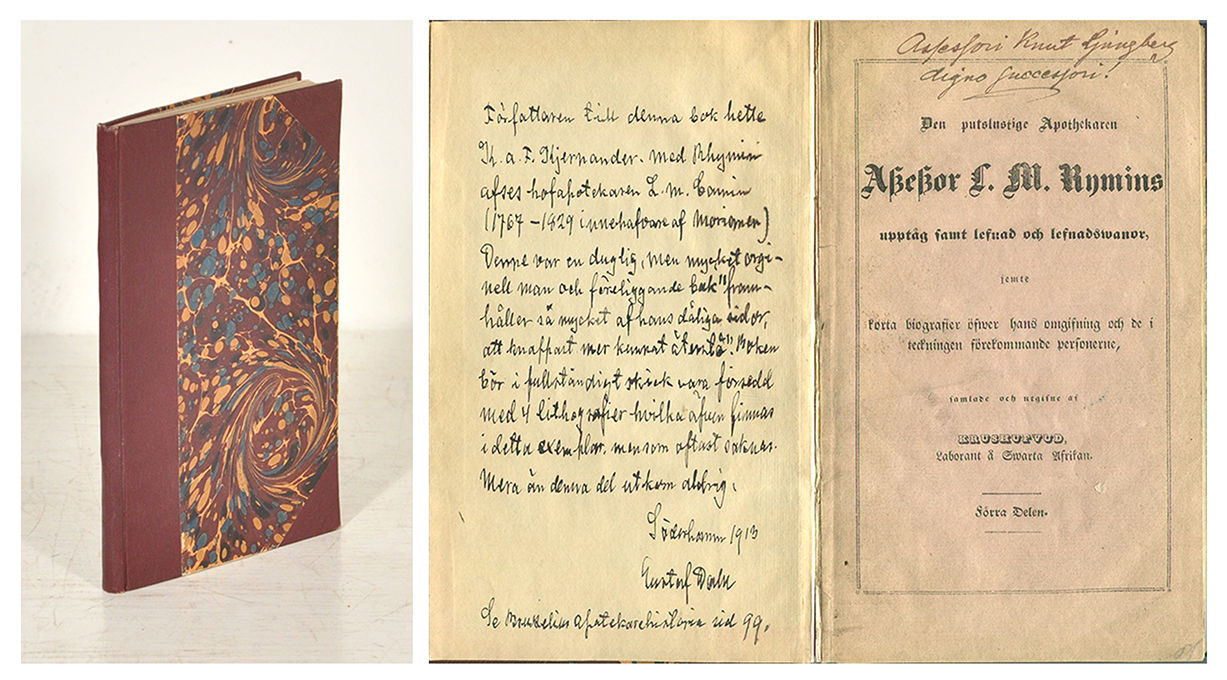 Författaren till denna bok hette
K. a. F. Kjernander. med Rhymin
afses hofapotekaren L. M. Camin
(1767 – 1829 innehafvare af Morianen)
Denne var en duglig, men mycket orgi-
nell man och föreliggande bok "fram-
håller så mycket af hans dåliga sidor,
att knappast mer kunnat återstå". Boken
bör i fullständigt skick vara försedd
med 4 lithografier hvilka äfven finnas
i detta exemplar, men som oftast saknas.
Mera än denna del utkom aldrig.
Söderhamn 1913
Gustaf
Se apotekarehistoria sid 99.
Assessori Knut Ljungberg
digno successori!
Den putslustige Apothekaren
Aßeßor L. M. Rymins
upptåg samt lefnad och lefnadswanor,
jemte
korta biografier öfwer hans omgifning och de i
teckningen förekommande personerne,
samlade och utgifne af
KRUSHUFVUD,
Laborant å Swarta Afrikan.
Förra Delen.